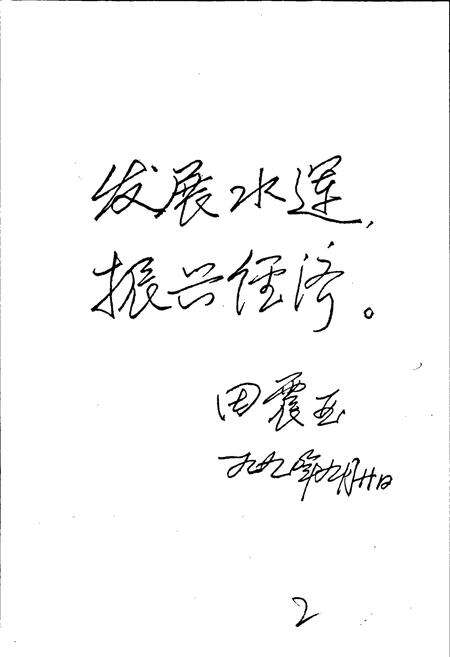 发展水運,
振兴经济。
田震亚
一九九〇年九月廿日
2